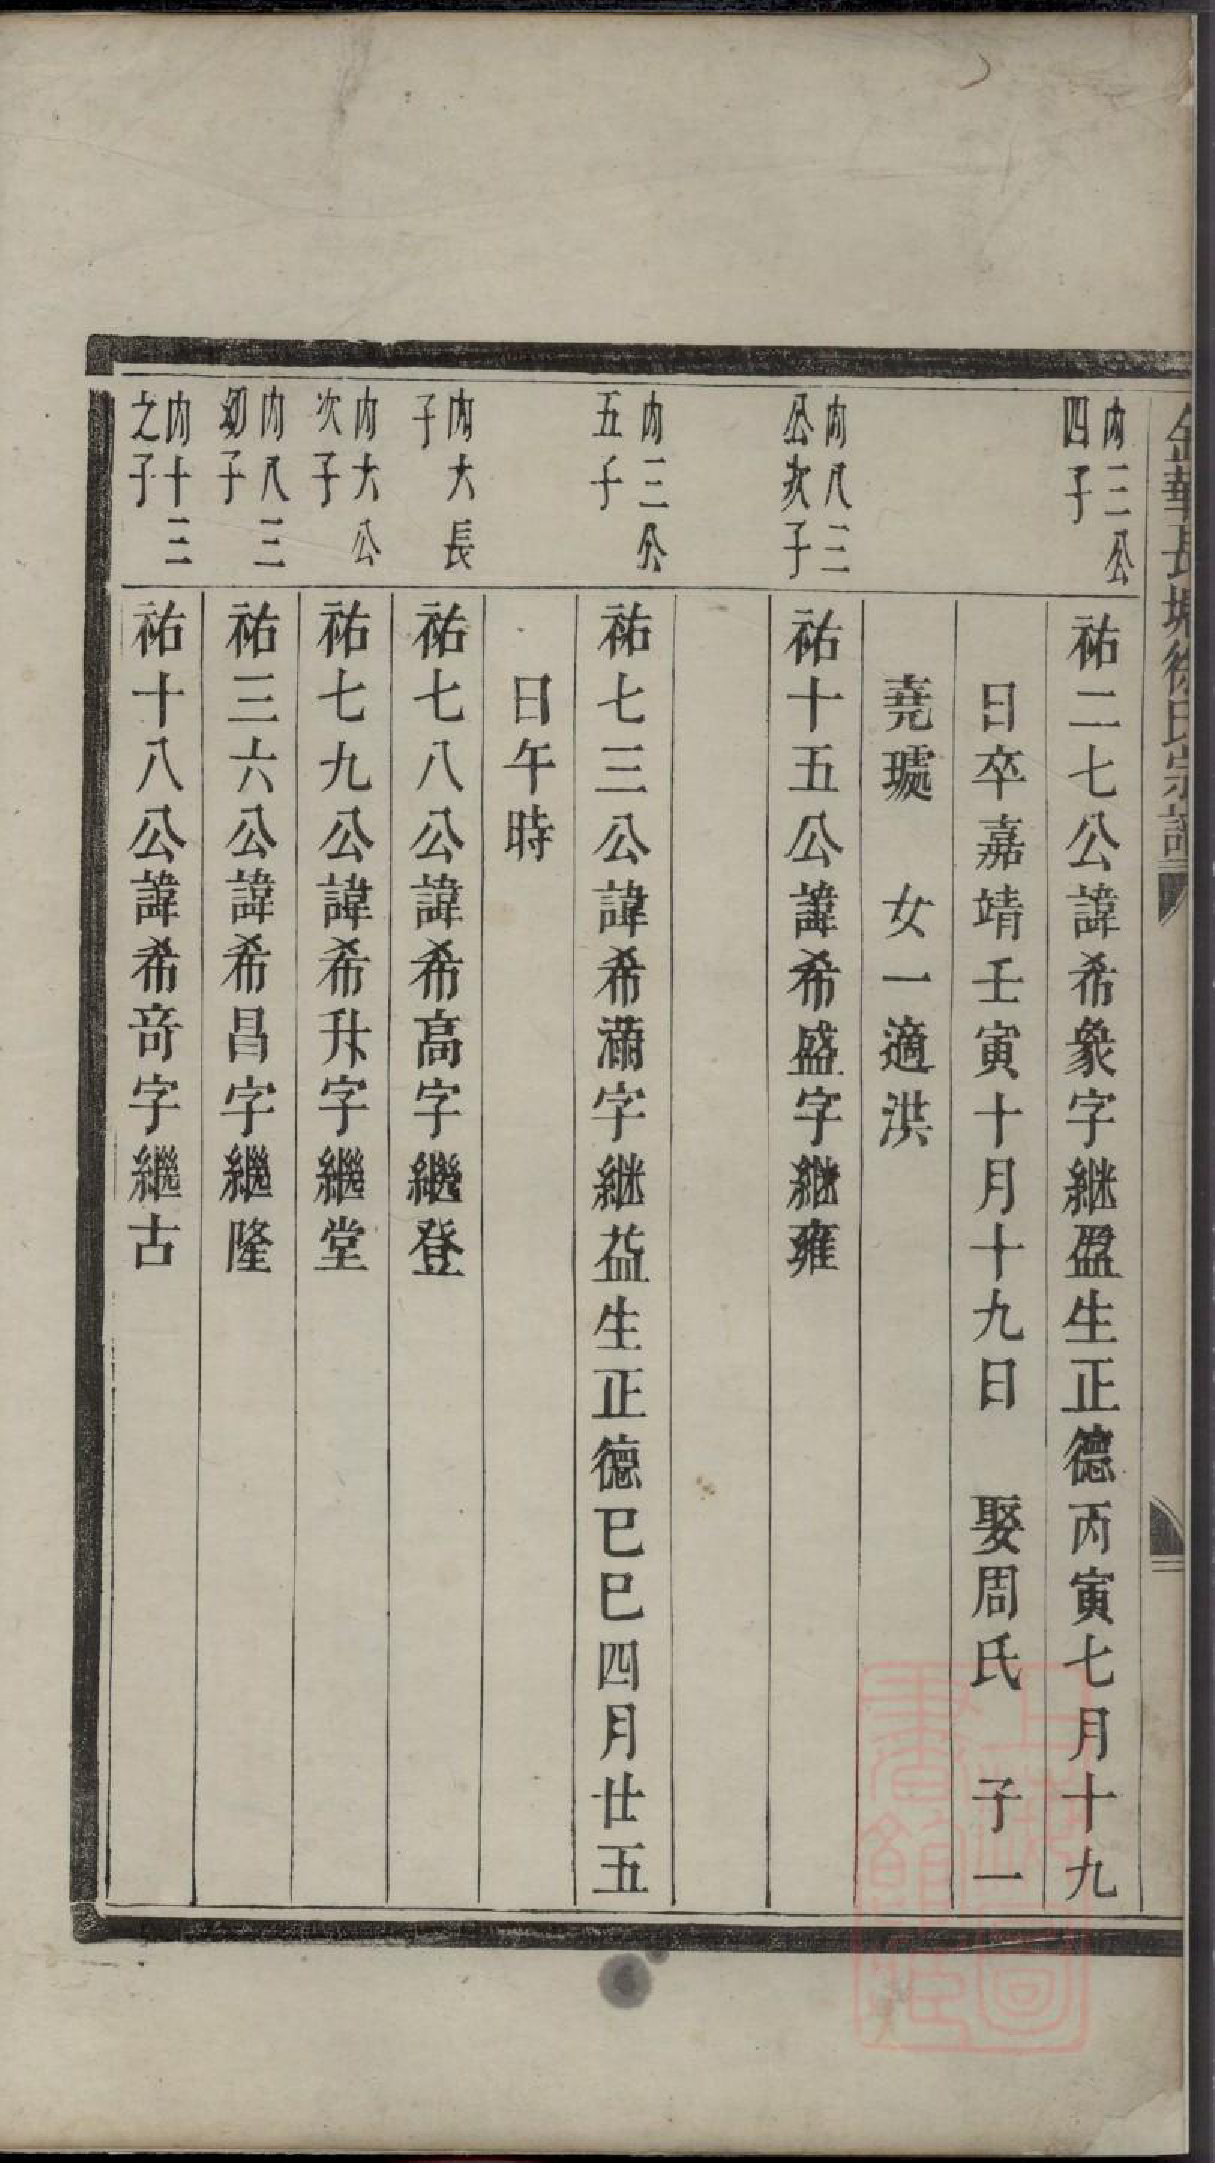 金華長塘徐氏宗譜
内三公四子
祐二七公諱希象字継盈生正德丙寅七月十九
日卒嘉靖壬寅十月十九日　娶周氏　子一
堯琥　女一適洪
内八三公次子
祐十五公諱希盛字継雍
内三公五子
祐七三公諱希滿字継益生正德巳巳四月廿五
日午時
内大長子
祐七八公諱希高字繼登
内大公次子
祐七九公諱希升字繼堂
内八三幼子
祐三六公諱希昌字繼隆
内十三之子
祐十八公諱希奇字繼古
上海圖書館藏